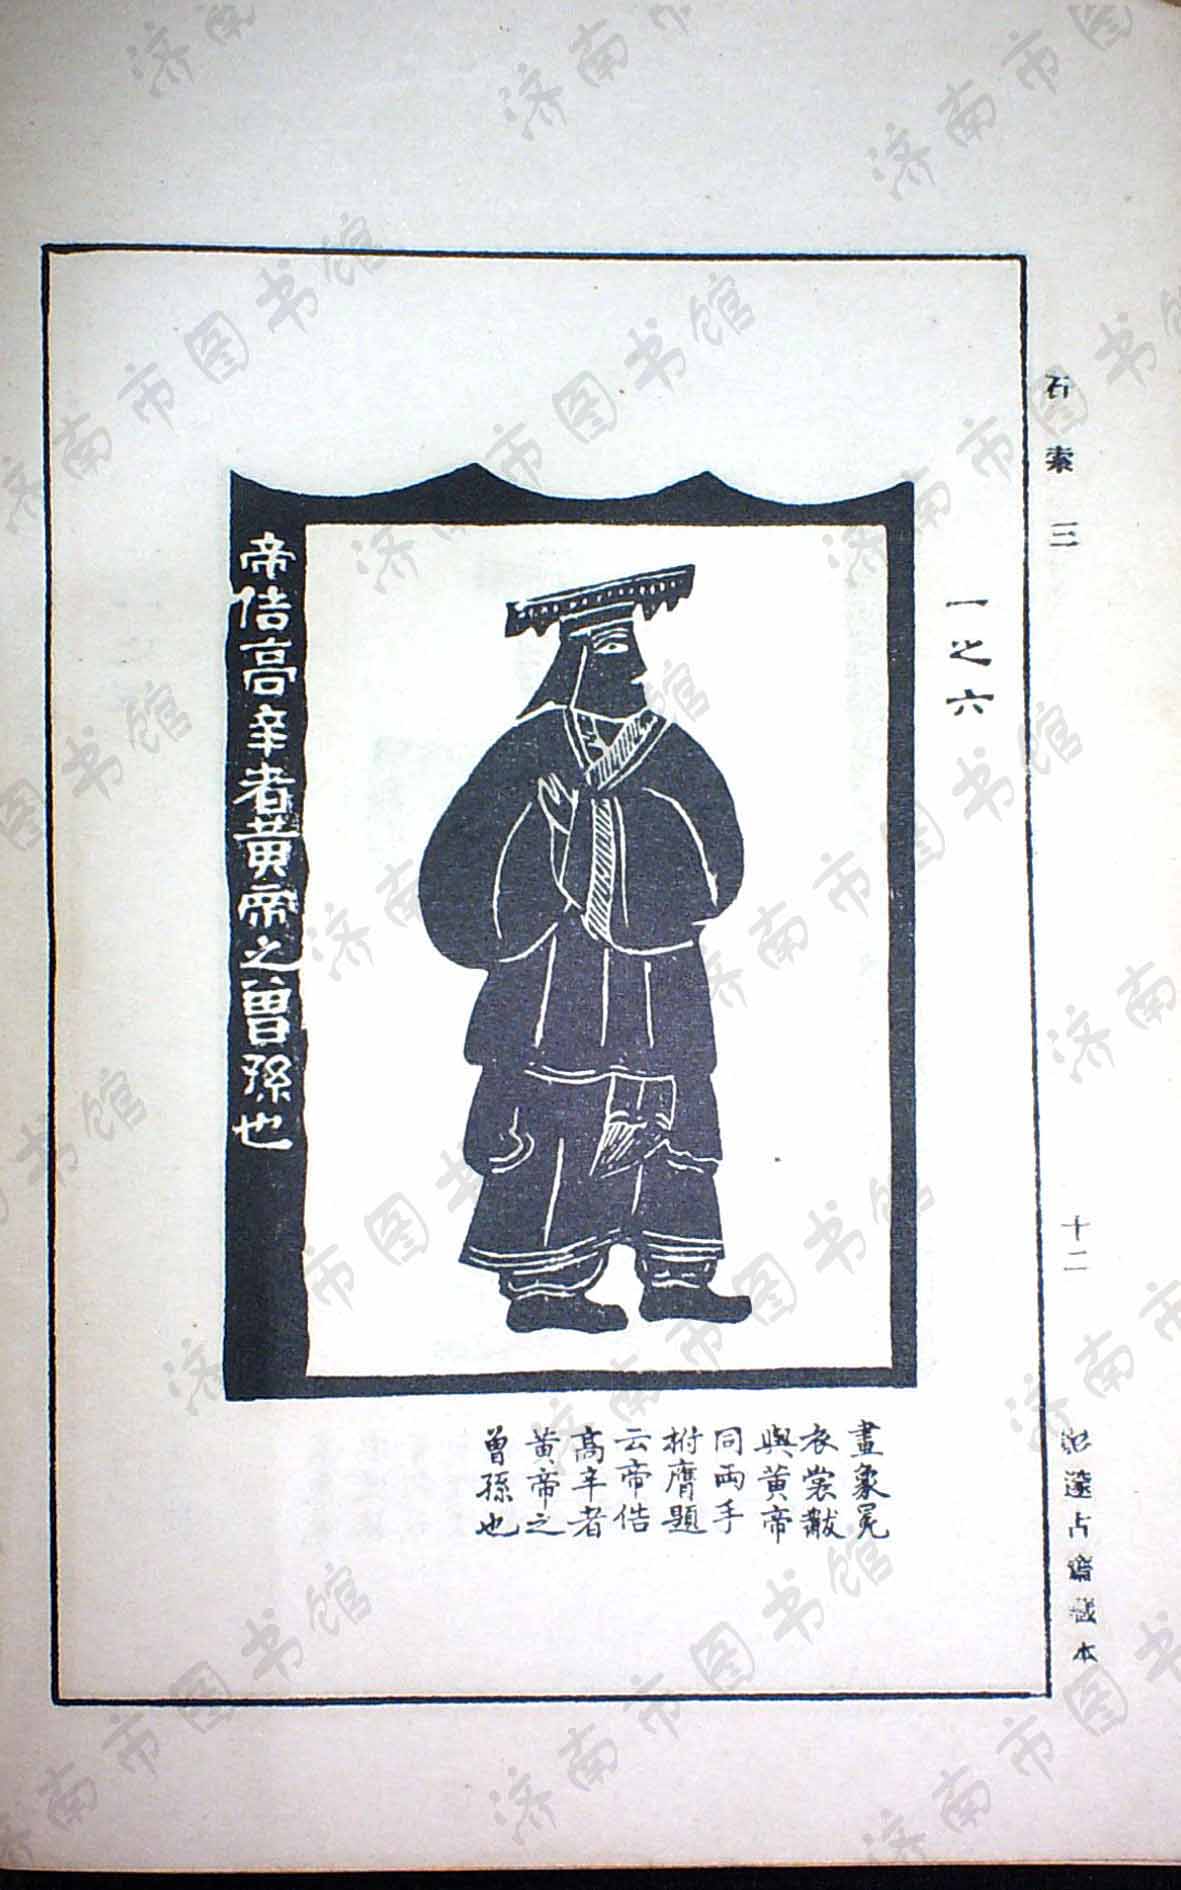 石索三
十二
邃古齋藏本
一之六
帝俈高辛者黃帝之曾孫也
畫象冕
衣裳黻
與黃帝
同兩手
拊膺題
云帝俈
高辛者
黃帝之
曾孫也
济南市图书馆